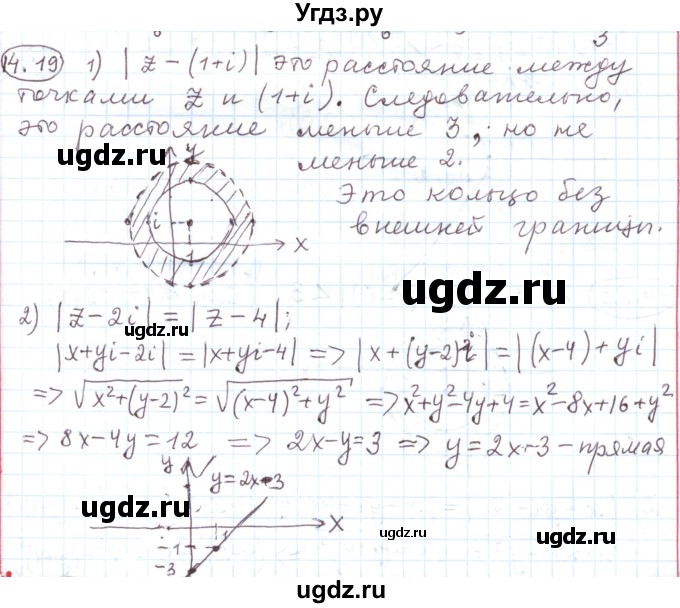 Угдз.ру
14.19) 1) |z-(1+i)| это расстояние между
точками z и (1+i). Следовательно,
это расстояние меньше 3, но не
меньше 2.
Это кольцо без
внешней границы.
y
i
1
x
2) |z-2i| = |z-4|;
|x+yi-2i| = |x+yi-4| => |x+(y-2)i| = |(x-4)+yi|
=> √x²+(y-2)² = √(x-4)²+y² => x²+y²-4y+4=x²-8x+16+y²
=> 8x-4y=12 => 2x-y=3 => y=2x-3 - прямая
y
y=2x-3
x
1
-1
-3
ugdz.ru
ugdz.ru
ugdz.ru
ugdz.ru
ugdz.ru
ugdz.ru
ugdz.ru
ugdz.ru
ugdz.ru
ugdz.ru